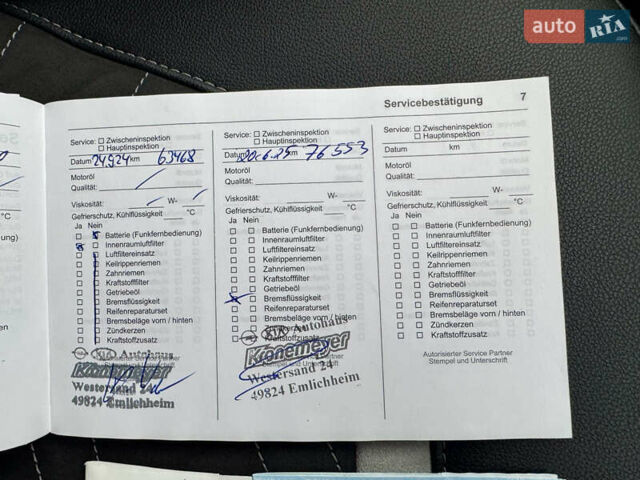 auto RIA.com
Servicebestätigung 7
Service: Zwischeninspektion
Hauptinspektion
Datum 24.9.24 km 63468
Motoröl
Qualität:
Viskosität: W-
Gefrierschutz, Kühlflüssigkeit °C
Ja Nein
Batterie (Funkfernbedienung)
Innenraumluftfilter
Luftfiltereinsatz
Keilrippenriemen
Zahnriemen
Kraftstofffilter
Getriebeöl
Bremsflüssigkeit
Reifenreparaturset
Bremsbeläge vorn / hinten
Zündkerzen
Kraftstoffzusatz
KIA Autohaus
Kronemeyer
Westersand 24
49824 Emlichheim
Service: Zwischeninspektion
Hauptinspektion
Datum 20.6.25 km 76553
Motoröl
Qualität:
Viskosität: W-
Gefrierschutz, Kühlflüssigkeit °C
Ja Nein
Batterie (Funkfernbedienung)
Innenraumluftfilter
Luftfiltereinsatz
Keilrippenriemen
Zahnriemen
Kraftstofffilter
Getriebeöl
Bremsflüssigkeit
Reifenreparaturset
Bremsbeläge vorn / hinten
Zündkerzen
Kraftstoffzusatz
KIA Autohaus
Kronemeyer
Westersand 24
49824 Emlichheim
Service: Zwischeninspektion
Hauptinspektion
Datum km
Motoröl
Qualität:
Viskosität: W-
Gefrierschutz, Kühlflüssigkeit °C
Ja Nein
Batterie (Funkfernbedienung)
Innenraumluftfilter
Luftfiltereinsatz
Keilrippenriemen
Zahnriemen
Kraftstofffilter
Getriebeöl
Bremsflüssigkeit
Reifenreparaturset
Bremsbeläge vorn / hinten
Zündkerzen
Kraftstoffzusatz
Autorisierter Service Partner
Stempel und Unterschrift